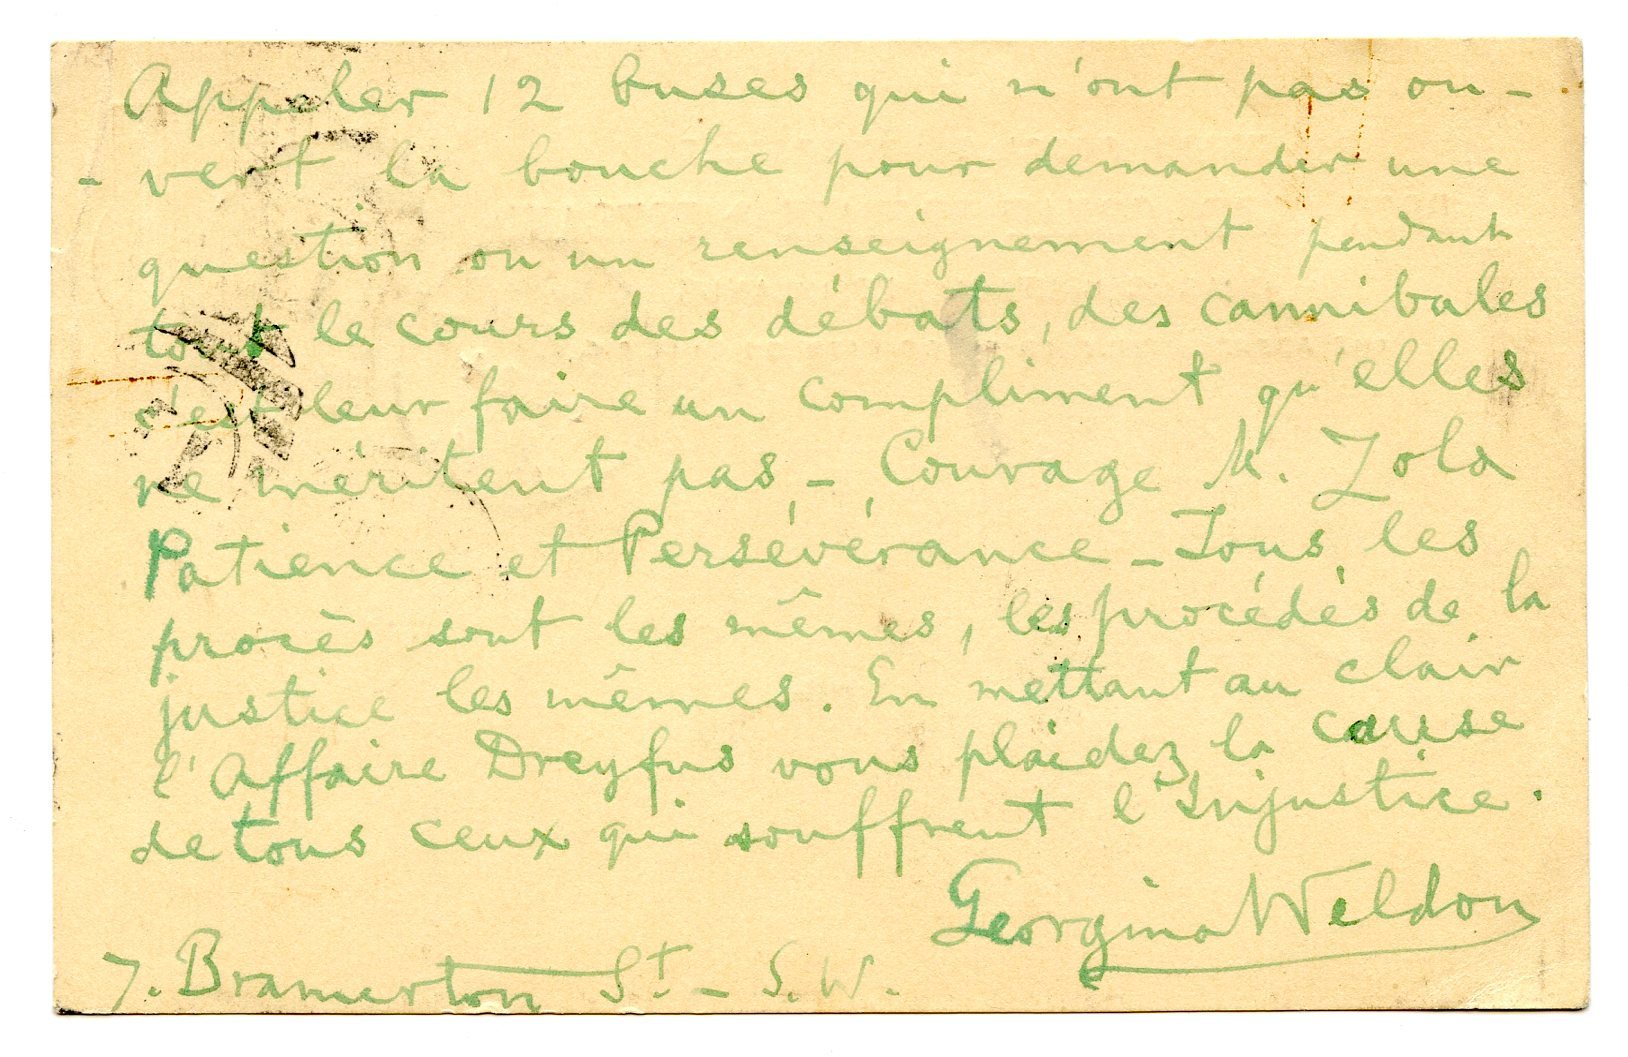 Appeler 12 buses qui n'ont pas ou-
- vert la bouche pour demander une
question ou un renseignement pendant
tout le cours des débats, des cannibales
c'est leur faire un compliment qu'elles
ne méritent pas - Courage M. Zola
Patience et Persévérance - Tous les
procès sont les mêmes, les procédés de la
justice les mêmes. En mettant au clair
l'Affaire Dreyfus vous plaidez la cause
de tous ceux qui souffrent l'Injustice.
Georgina Weldon
7. Bramerton St - S.W.